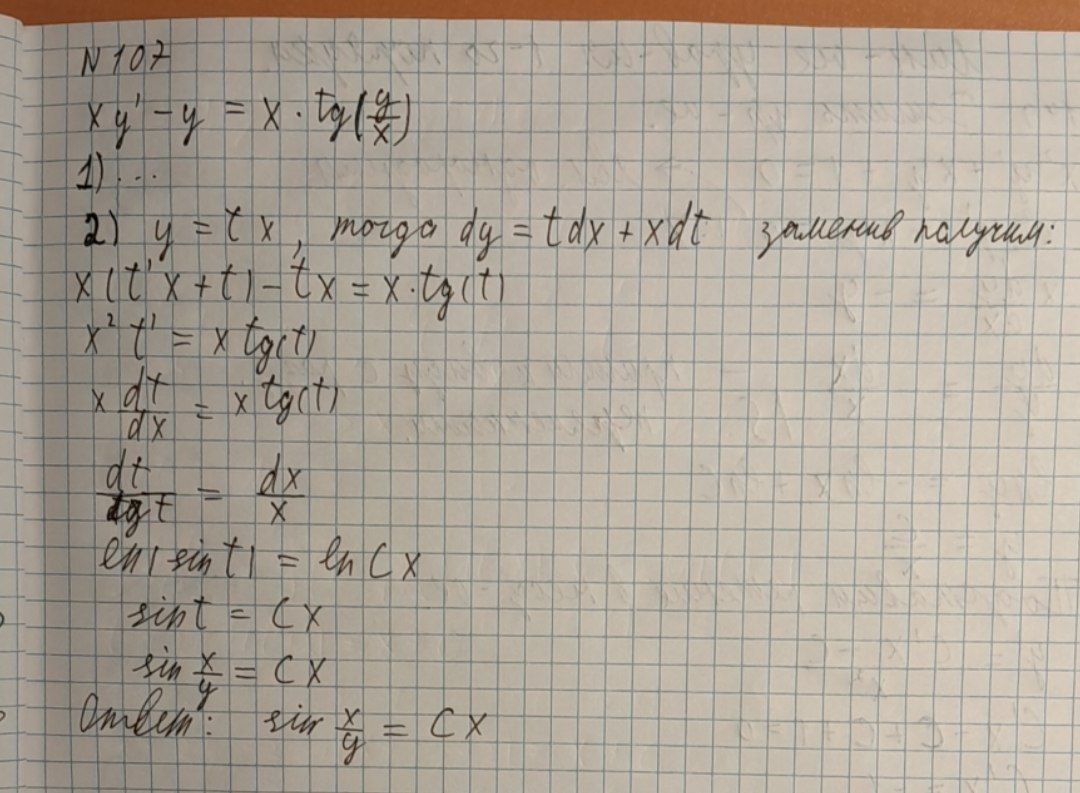 N 107
xy' - y = x · tg(y/x)
1) ...
2) y = tx, тогда dy = tdx + xdt заменив получим:
x(t'x + t) - tx = x · tg(t)
x² t' = x tg(t)
x dt/dx = x tg(t)
dt/tg t = dx/x
ln|sin t| = ln Cx
sin t = Cx
sin x/y = Cx
Ответ: sin x/y = Cx